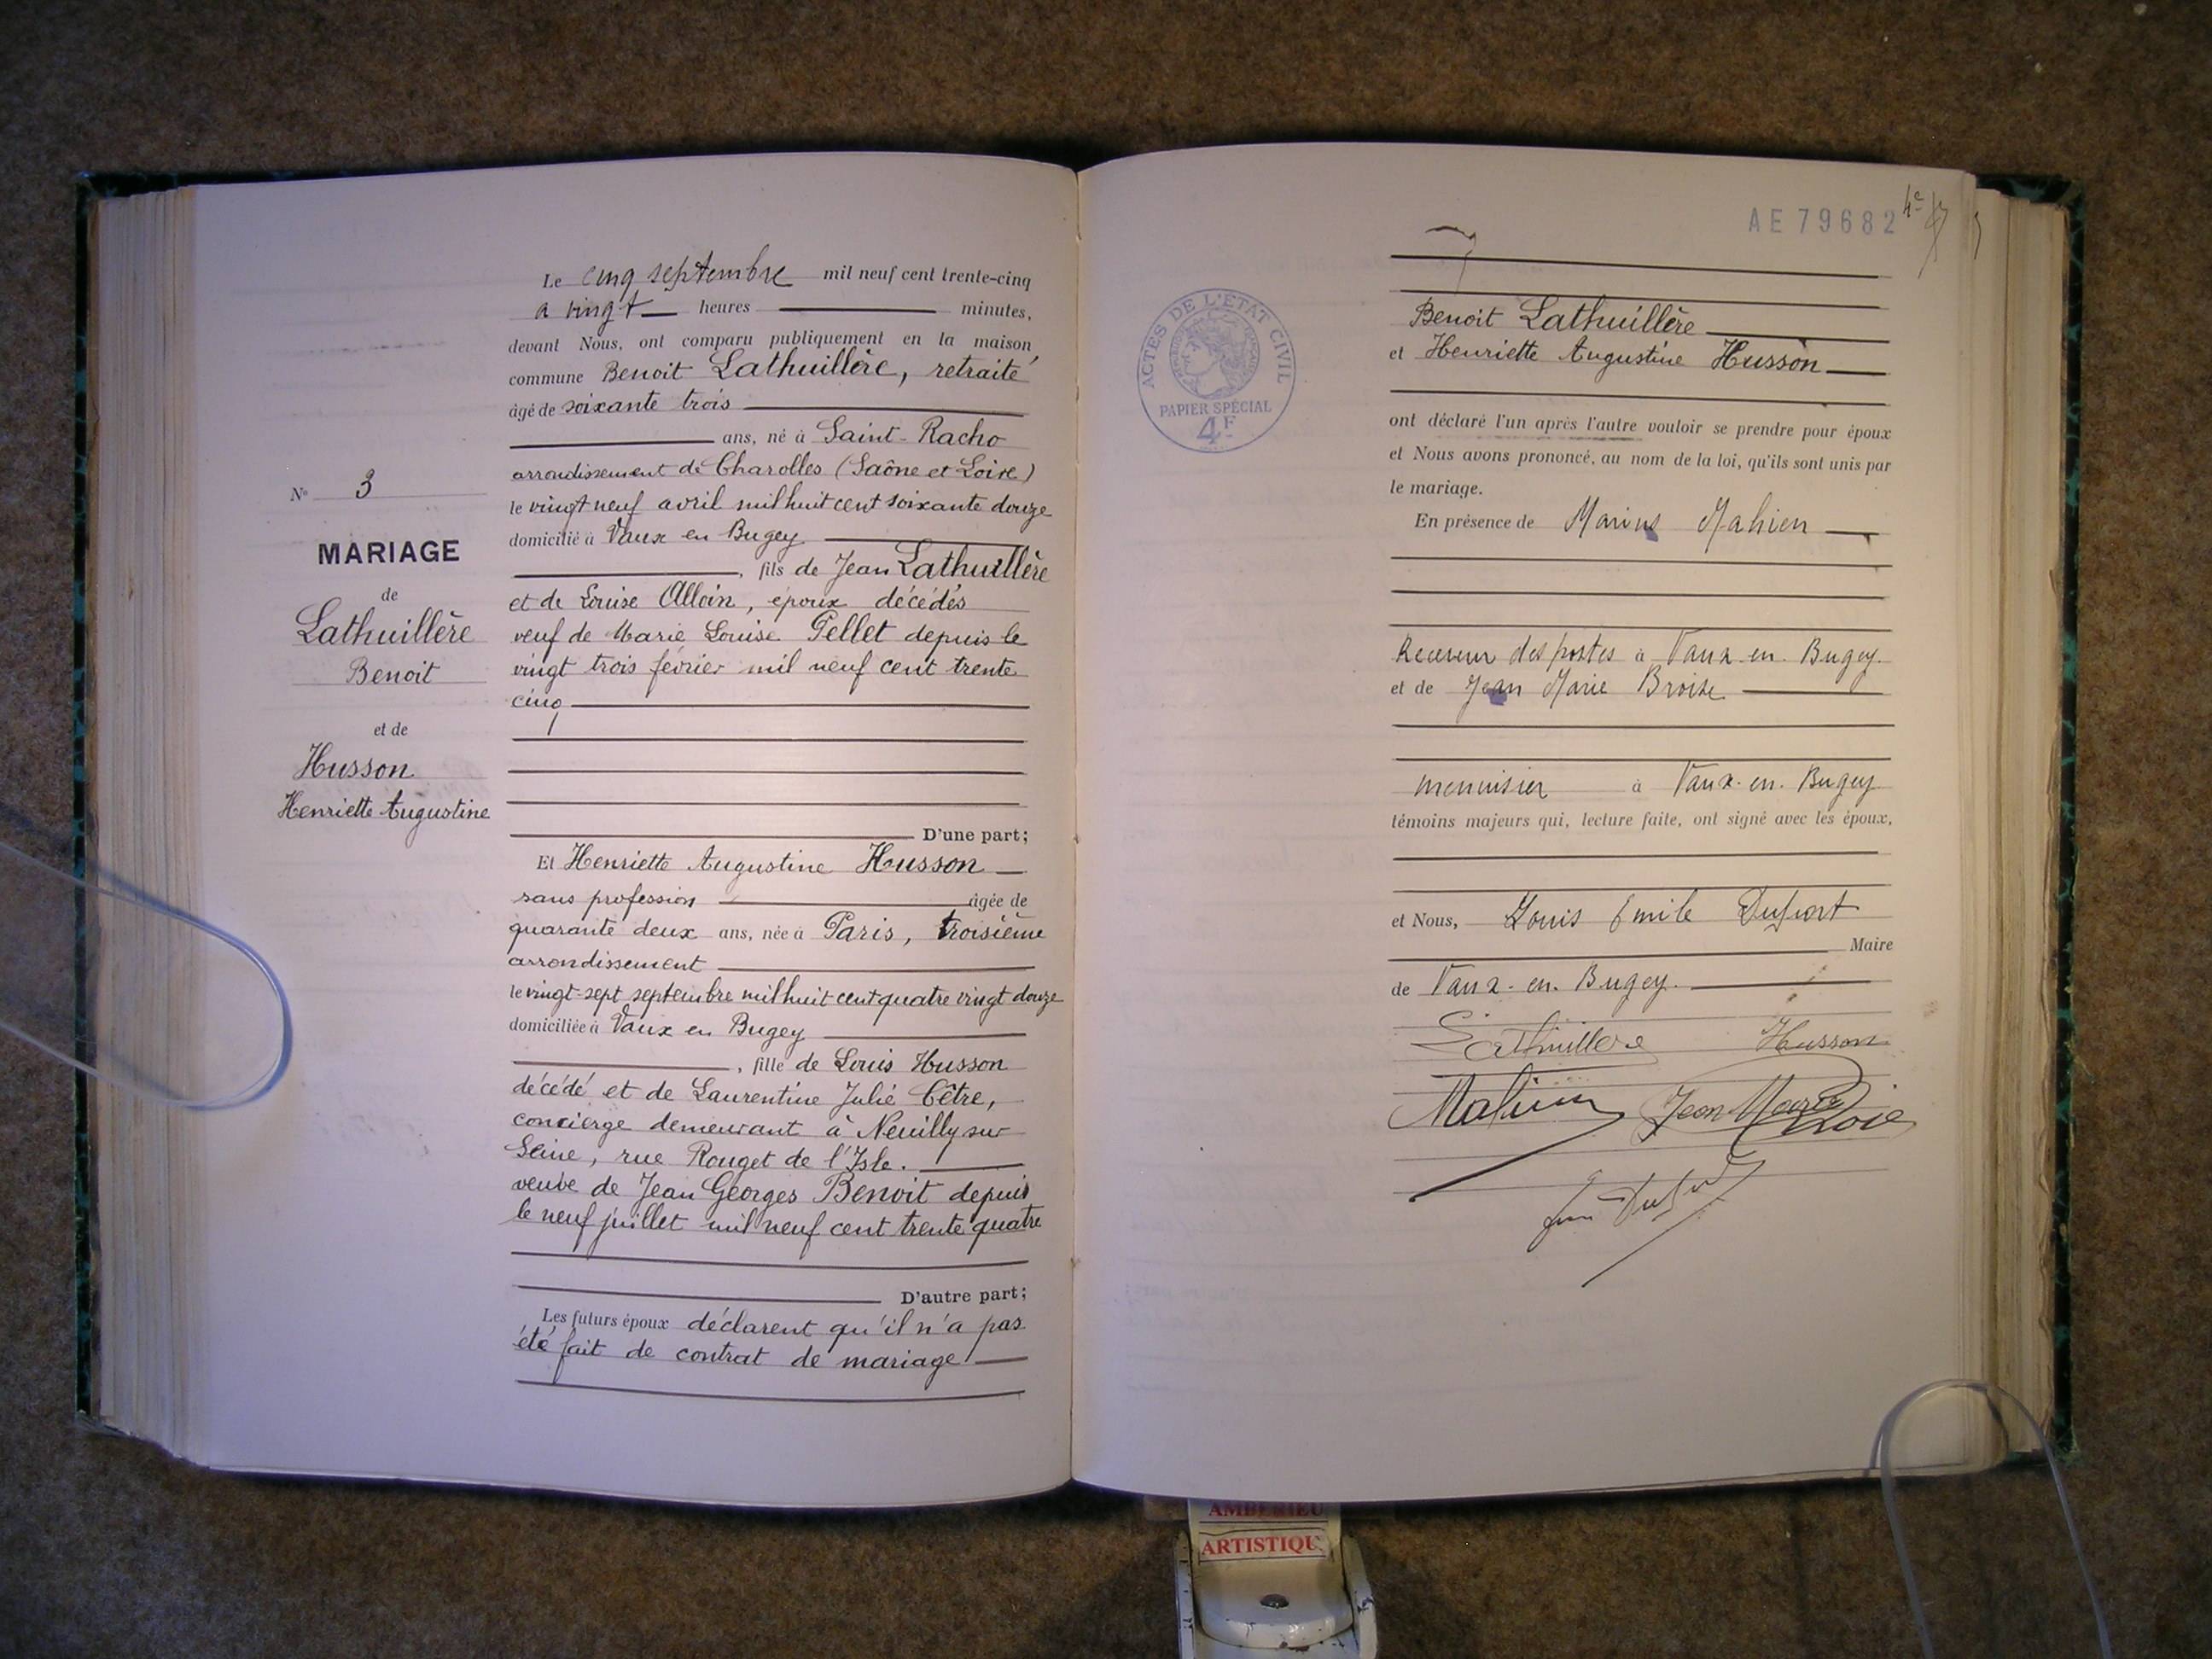 Le cinq septembre mil neuf cent trente-cinq
a vingt heures minutes,
devant Nous, ont comparu publiquement en la maison
commune Benoit Lathuillère, retraité
âgé de soixante trois
ans, né à Saint-Racho
arrondissement de Charolles (Saône et Loire)
le vingt neuf avril mil huit cent soixante douze
domicilié à Vaux en Bugey
, fils de Jean Lathuillère
et de Louise Alloin, époux décédés
veuf de Marie Louise Pellet depuis le
vingt trois février mil neuf cent trente
cinq
D'une part;
Et Henriette Augustine Husson
sans profession âgée de
quarante deux ans, née à Paris, troisième
arrondissement
le vingt-sept septembre mil huit cent quatre vingt douze
domiciliée à Vaux en Bugey
, fille de Louis Husson
décédé et de Laurentine Julie Cêtre,
concierge demeurant à Neuilly sur
Seine, rue Rouget de l'Isle.
veuve de Jean Georges Benoit depuis
le neuf juillet mil neuf cent trente quatre
D'autre part;
Les futurs époux déclarent qu'il n'a pas
été fait de contrat de mariage
N° 3
MARIAGE
de
Lathuillère
Benoit
et de
Husson
Henriette Augustine
AE79682
ACTES DE L'ÉTAT CIVIL
PAPIER SPÉCIAL
4F
Benoit Lathuillère
et Henriette Augustine Husson
ont déclaré l'un après l'autre vouloir se prendre pour époux
et Nous avons prononcé, au nom de la loi, qu'ils sont unis par
le mariage.
En présence de Marius Mahien
Receveur des postes à Vaux-en-Bugey.
et de Jean Marie Broise
menuisier à Vaux-en-Bugey
témoins majeurs qui, lecture faite, ont signé avec les époux,
et Nous, Louis Emile Dufort
Maire
de Vaux-en-Bugey.
Lathuillère Husson
Jean Marie
AMBERIEU
ARTISTIQU